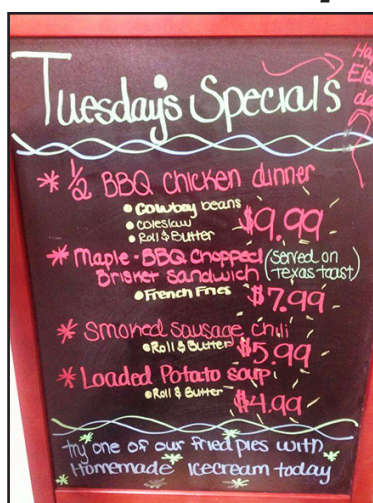 Hap
Ele
da
Tuesday's Specials
* 1/2 BBQ Chicken dinner
• Cowboy beans
• coleslaw
• Roll & Butter
$9.99
* Maple-BBQ Chopped (served on
Brisket Sandwich texas toast)
• French Fries $7.99
* Smoked sausage chili
• Roll & Butter $5.99
* Loaded Potato soup
• Roll & Butter
$4.99
try one of our fried pies with
Homemade icecream today